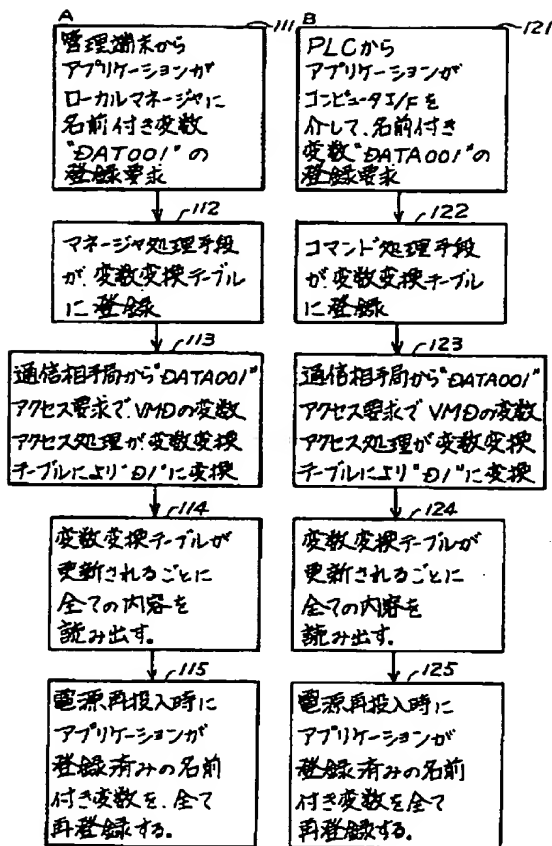 A
111
管理端末から
アプリケーションが
ローカルマネージャに
名前付き変数
"DAT001"の
登録要求
112
マネージャ処理手段
が、変数変換テーブル
に登録
113
通信相手局から"DATA001"
アクセス要求でVMDの変数
アクセス処理が、変数変換
テーブルにより"D1"に変換
114
変数変換テーブルが
更新されるごとに
全ての内容を
読み出す。
115
電源再投入時に
アプリケーションが
登録済みの名前
付き変数を、全て
再登録する。
B
121
PLCから
アプリケーションが
コンピュータI/Fを
介して、名前付き
変数"DATA001"の
登録要求
122
コマンド処理手段
が、変数変換テーブル
に登録
123
通信相手局から"DATA001"
アクセス要求でVMDの変数
アクセス処理が、変数変換
テーブルにより"D1"に変換
124
変数変換テーブルが
更新されるごとに
全ての内容を
読み出す。
125
電源再投入時に
アプリケーションが
登録済みの名前
付き変数を全て
再登録する。